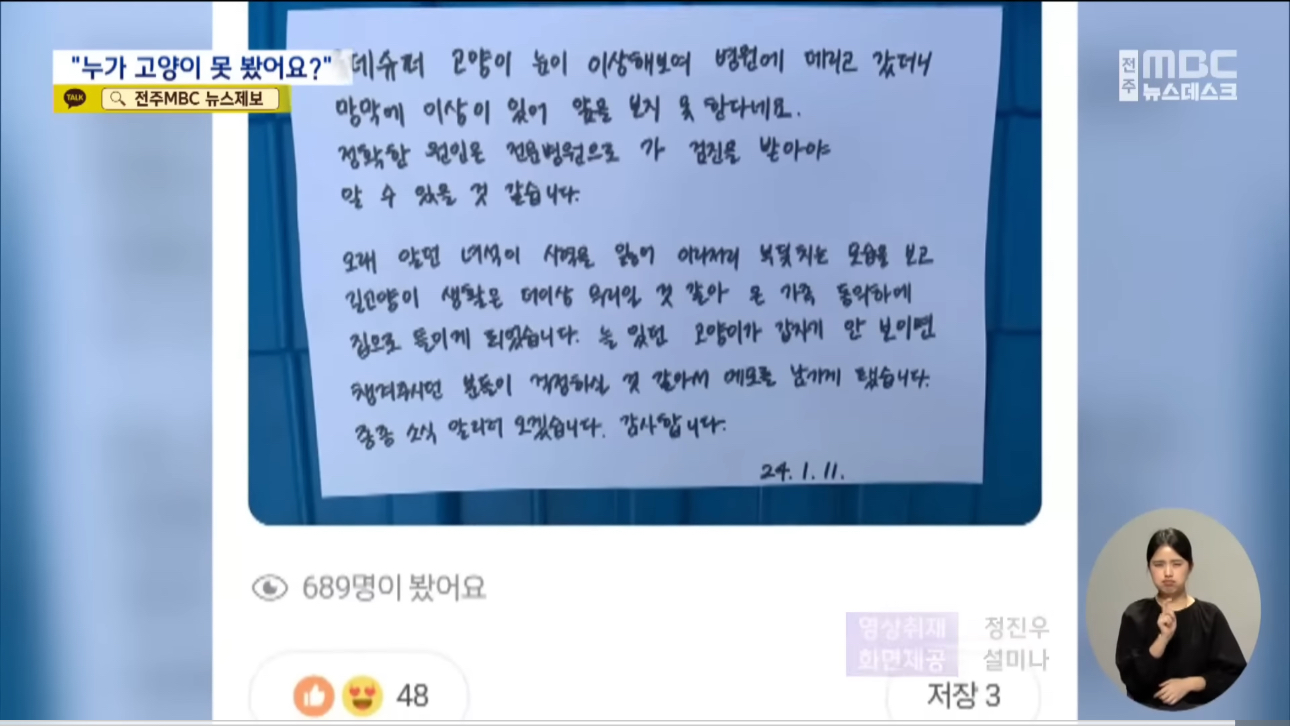 "누가 고양이 못 봤어요?"
TALK 전주MBC 뉴스제보
전주 MBC
뉴스데스크
데슈퍼 고양이 눈이 이상해보여 병원에 데리고 갔더니
망막에 이상이 있어 앞을 보지 못 한다네요.
정확한 원인은 전문병원으로 가 검진을 받아야
알 수 있을 것 같습니다.
오래 알던 녀석이 시력을 잃어 이리저리 부딪치는 모습을 보고
길고양이 생활은 더이상 무리일 것 같아 온 가족 동의하에
집으로 들이게 되었습니다. 늘 있던 고양이가 갑자기 안 보이면
챙겨주시던 분들이 걱정하실 것 같아서 메모를 남기게 됐습니다.
종종 소식 알리러 오겠습니다. 감사합니다.
24. 1. 11.
689명이 봤어요
영상취재 정진우
화면제공 설미나
48
저장 3